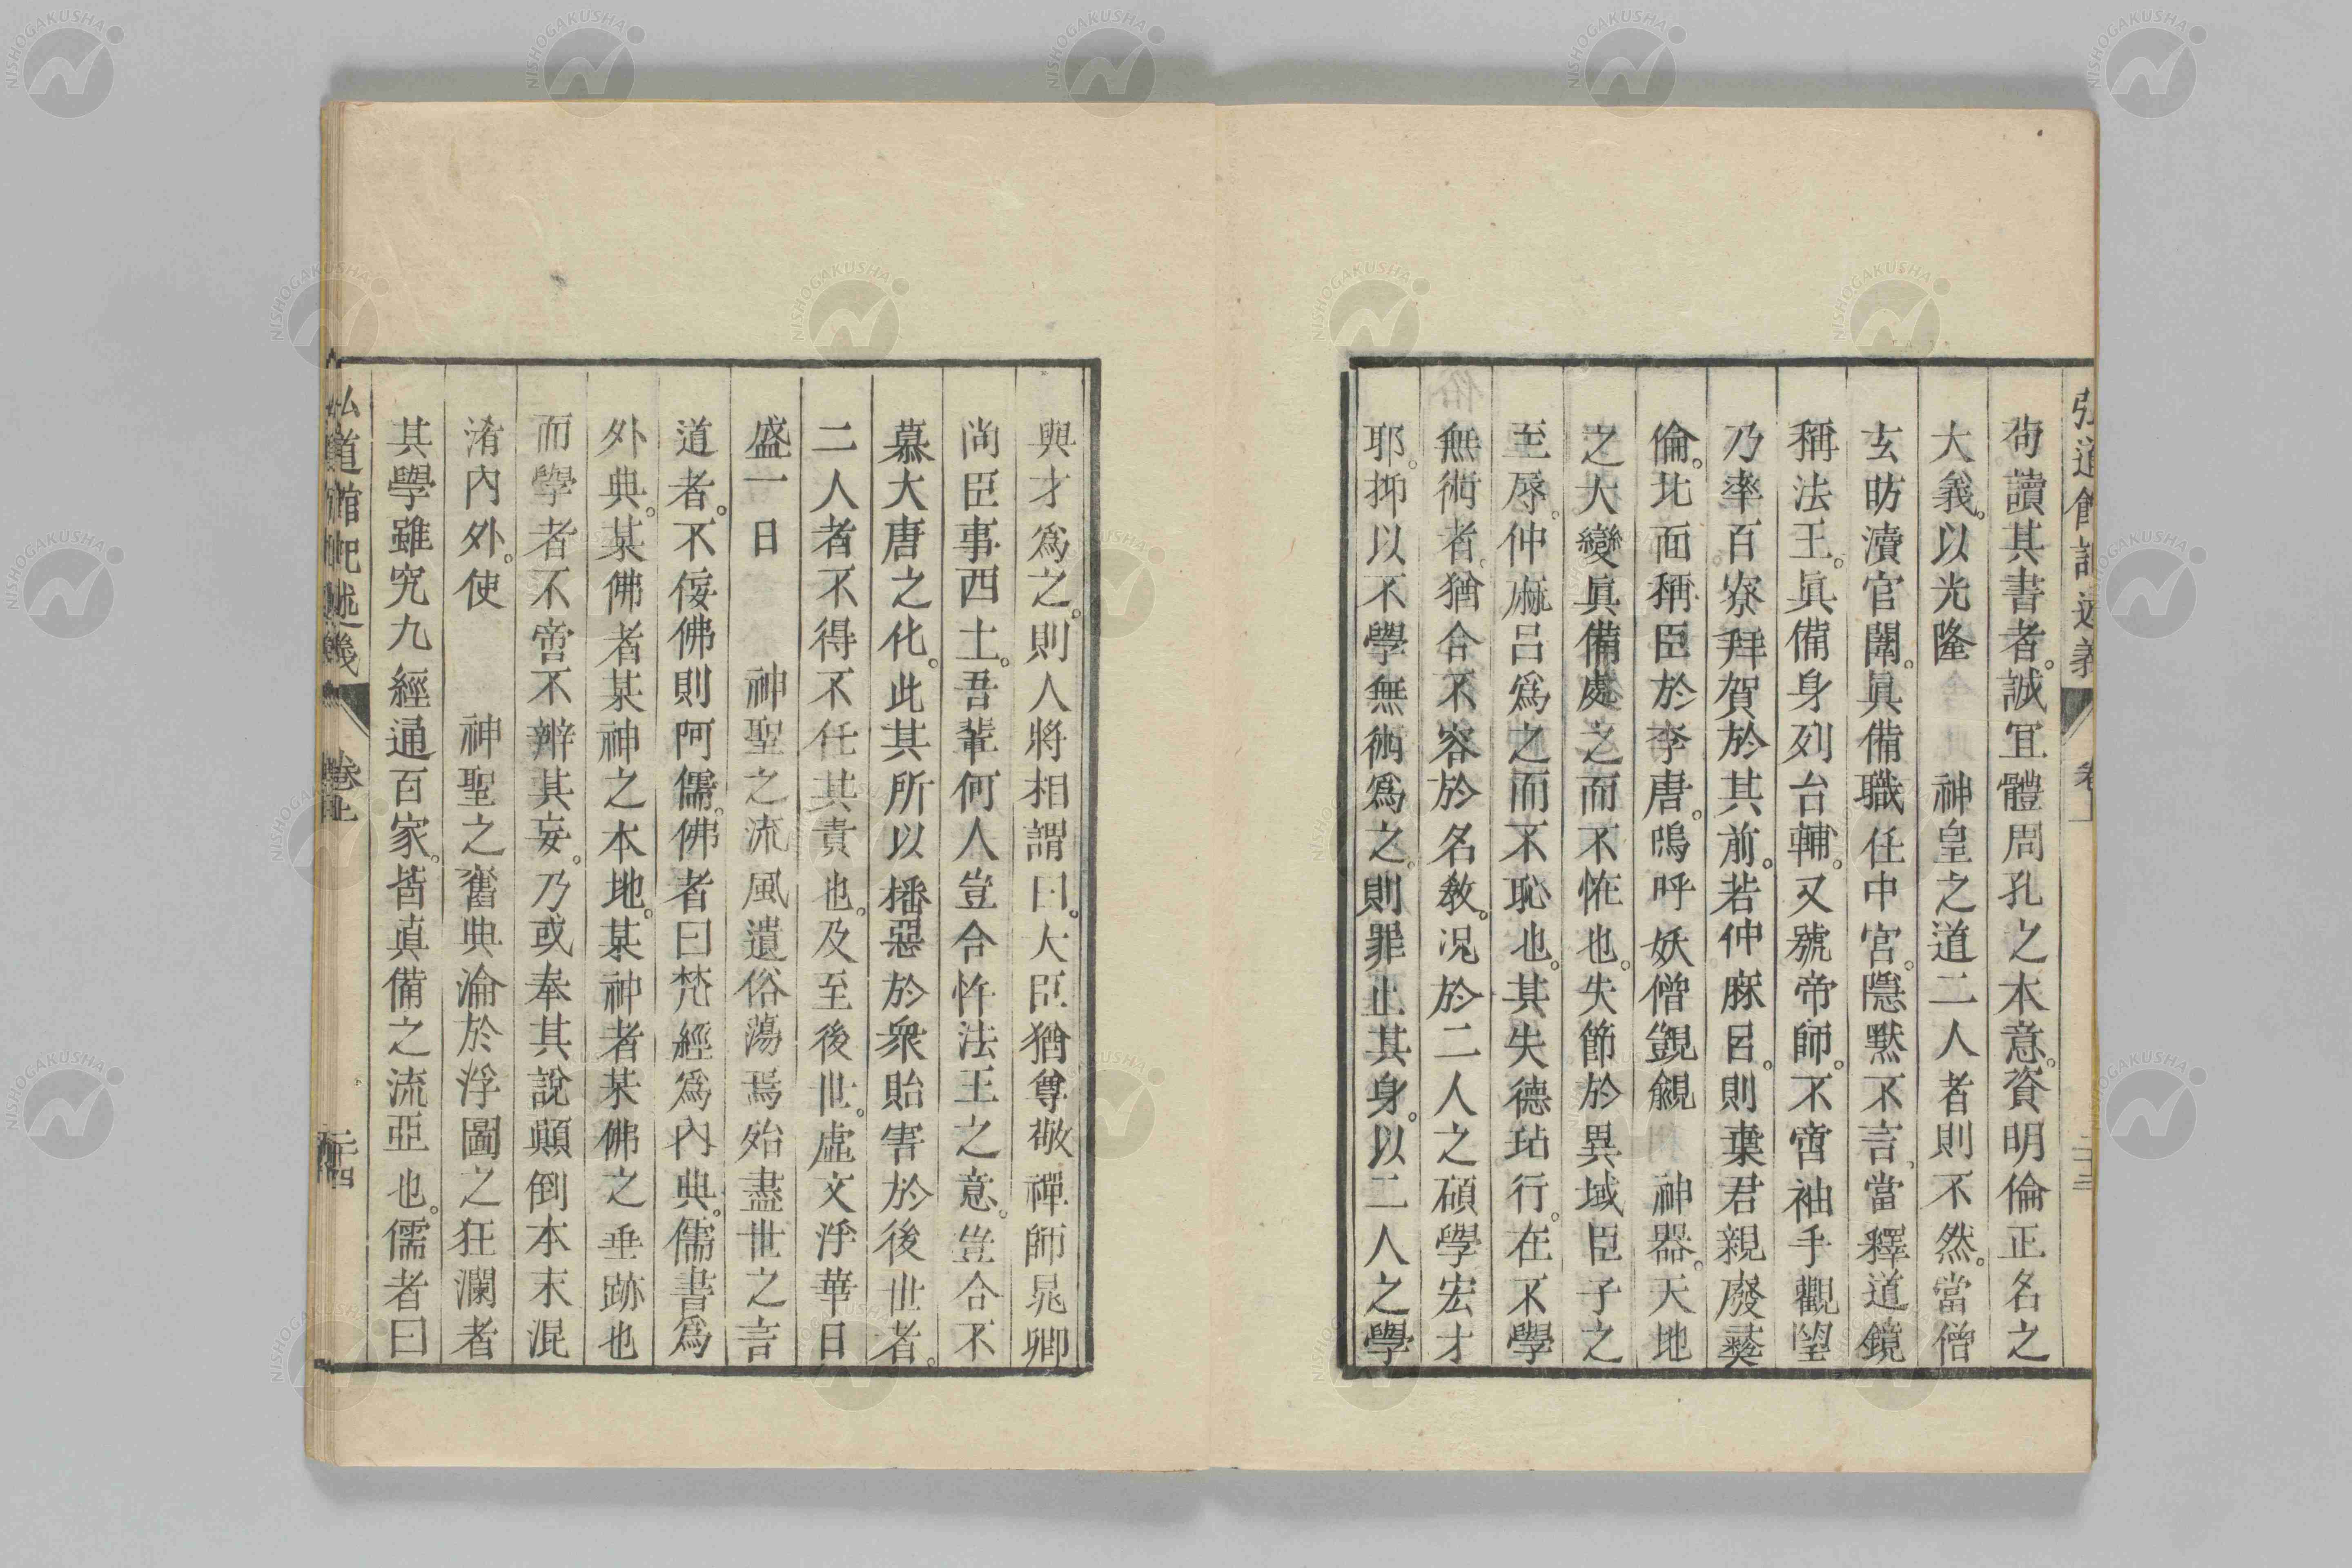 弘道館記述義 卷上 二十三
苟讀其書者。誠宜體周孔之本意。資明倫正名之
大義。以光隆　神皇之道二人者則不然。當僧
玄昉瀆官闈。眞備職任中宮。隱默不言。當釋道鏡
稱法王。眞備身列台輔。又號帝師。不啻袖手觀望
乃率百寮拜賀於其前。若仲麻呂。則棄君親廢彝
倫。北面稱臣於李唐。嗚呼妖僧覬覦　神器。天地
之大變眞備處之而不怪也。失節於異域臣子之
至辱。仲麻呂爲之而不恥也。其失德玷行。在不學
無術者。猶合不容於名教。况於二人之碩學宏才
耶。抑以不學無術爲之。則罪止其身。以二人之學
與才爲之。則人將相謂曰。大臣猶尊敬禪師晁卿
尚臣事西土。吾輩何人豈合忤法王之意。豈合不
慕大唐之化。此其所以播惡於衆貽害於後世者。
二人者不得不任其責也。及至後世。虛文浮華日
盛一日　神聖之流風遺俗蕩焉殆盡世之言
道者。不佞佛則阿儒。佛者曰梵經爲內典。儒書爲
外典。某佛者某神之本地。某神者某佛之垂跡也
而學者不啻不辨其妄。乃或奉其說顚倒本末混
淆內外。使　神聖之舊典淪於浮圖之狂瀾者
其學雖究九經通百家。皆眞備之流亞也。儒者曰
弘道館記述義 卷上 二十四
NISHOGAKUSHA